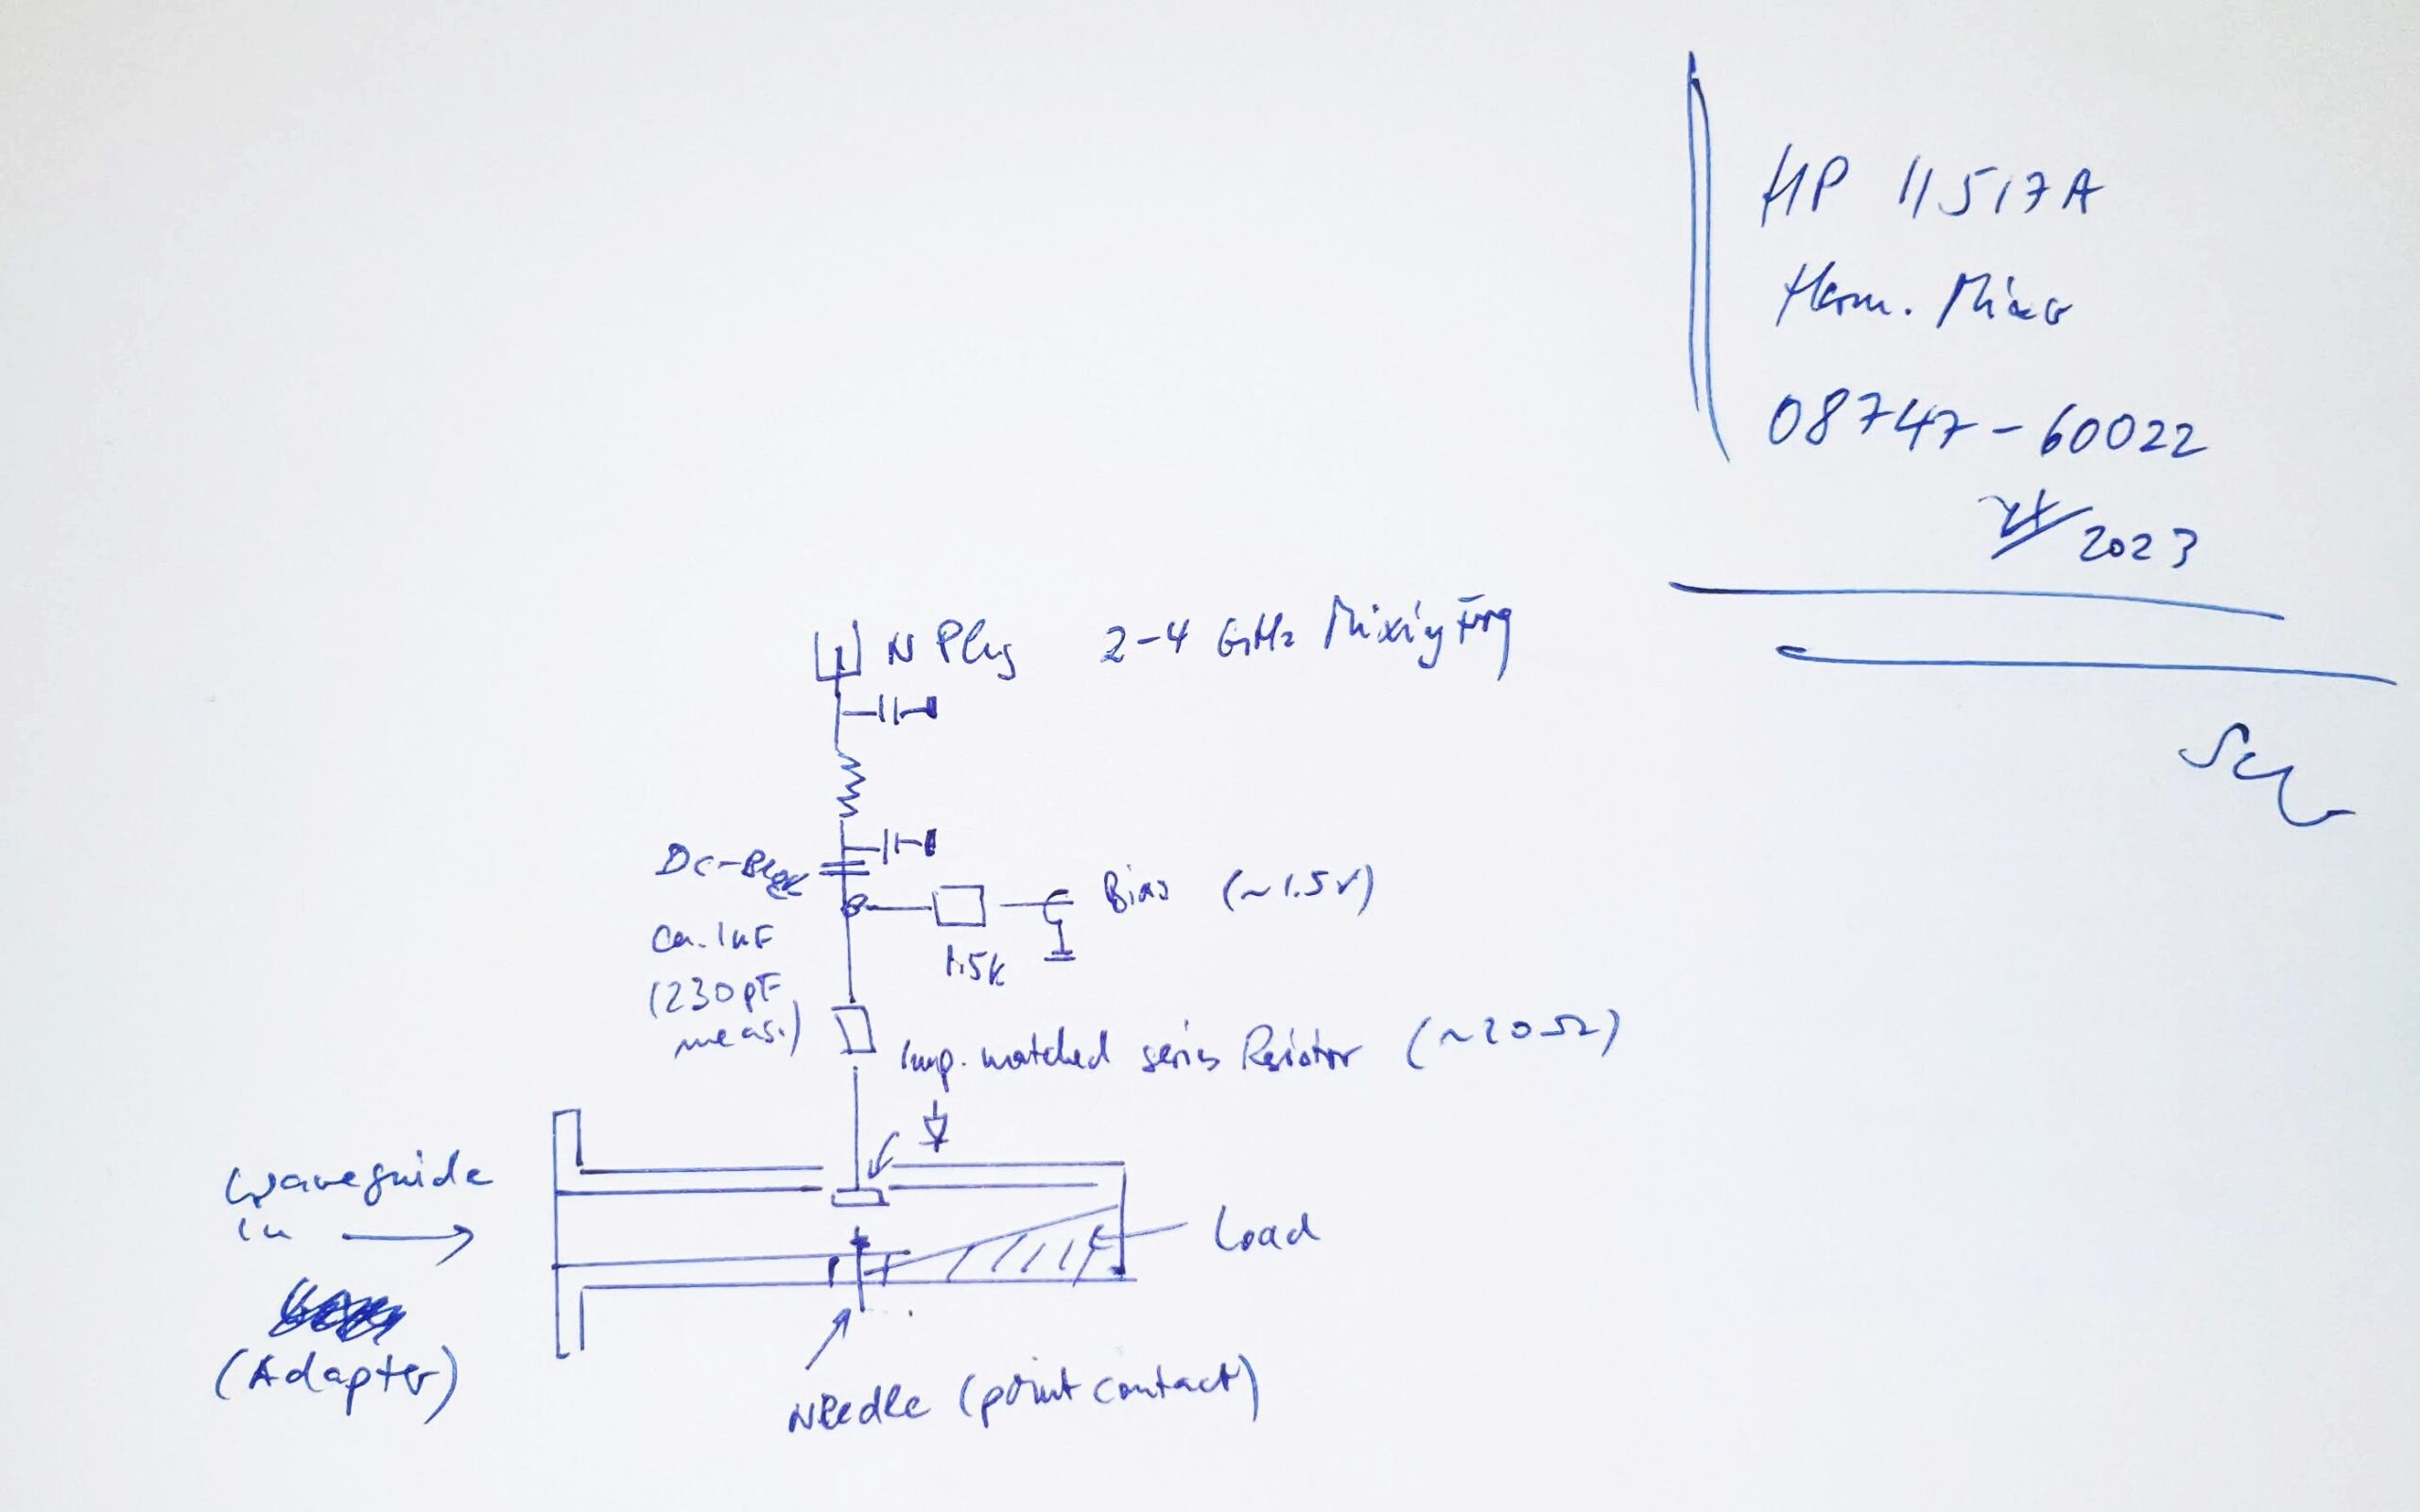 HP 11517A
Harm. Mixer
08747-60022
2023
N Plug 2-4 GHz Mixing Frq
DC-Block
Bias (~1.5V)
ca. 1nF
1.5k
(230pF
meas.)
Imp. matched series Resistor (~20Ω)
Waveguide
in
Load
(Adapter)
Needle (point contact)